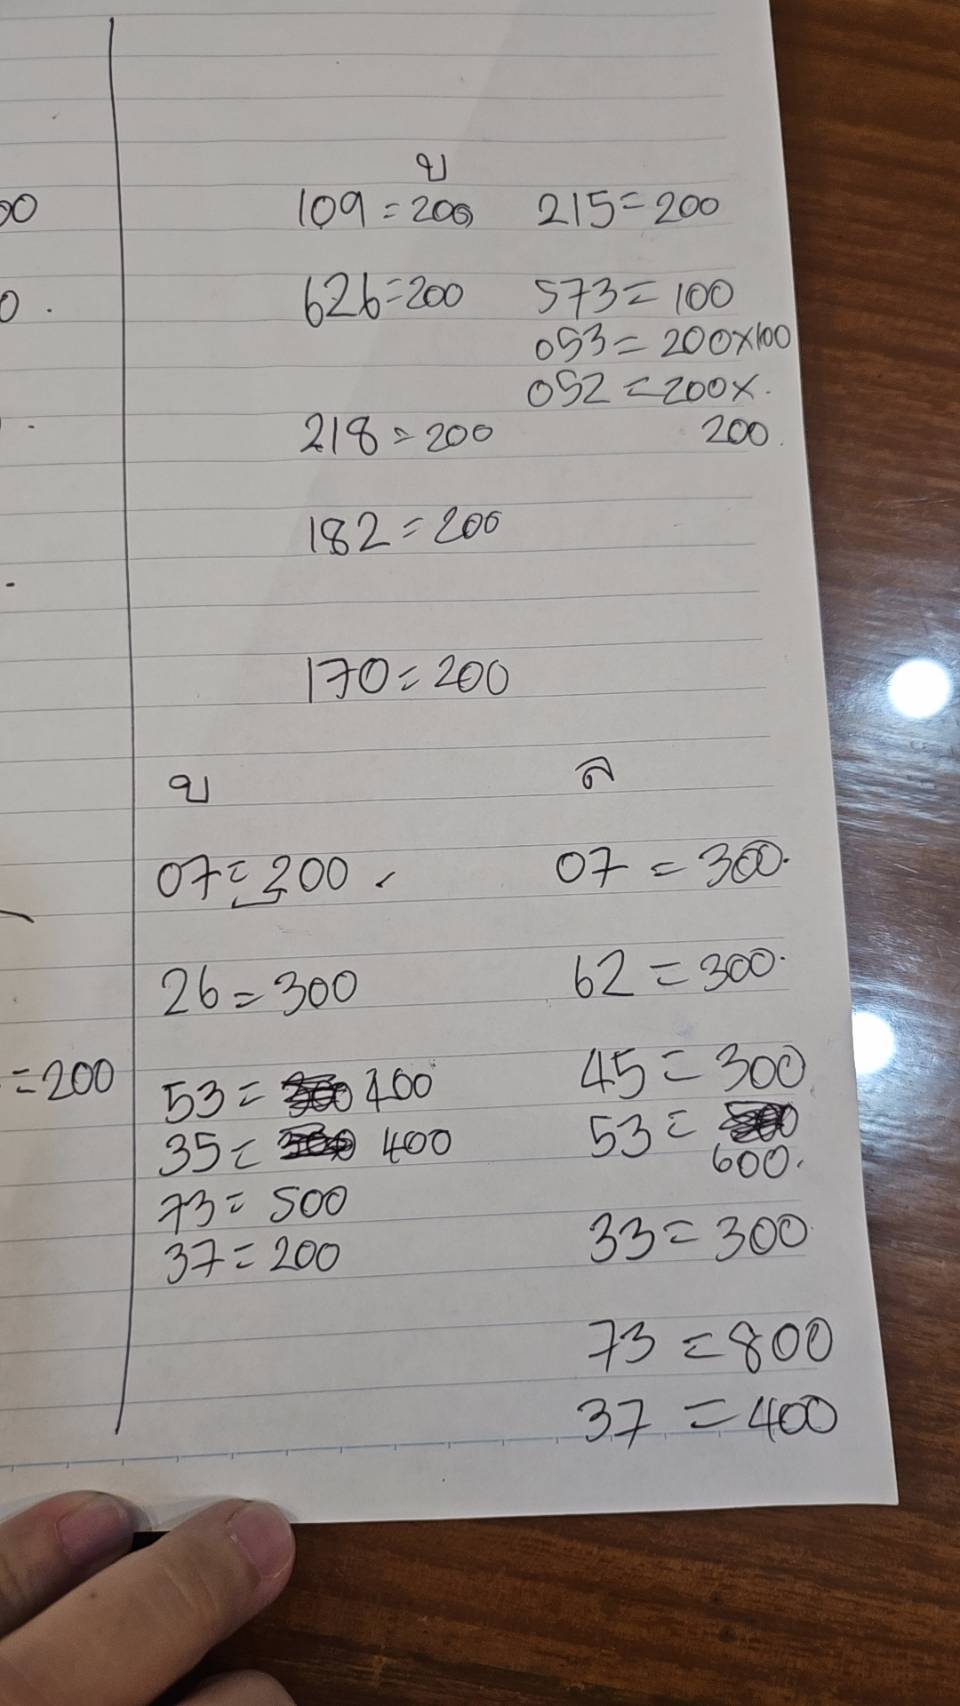 00
0.
บ
109=200 215=200
626=200 573=100
053=200x100
052=200x.
218=200 200.
182=200
170=200
บ ล
07=200 07=300.
26=300 62=300.
=200
53= 45=300
35= 400 53=
600.
73=500
37=200 33=300
73=800
37=400